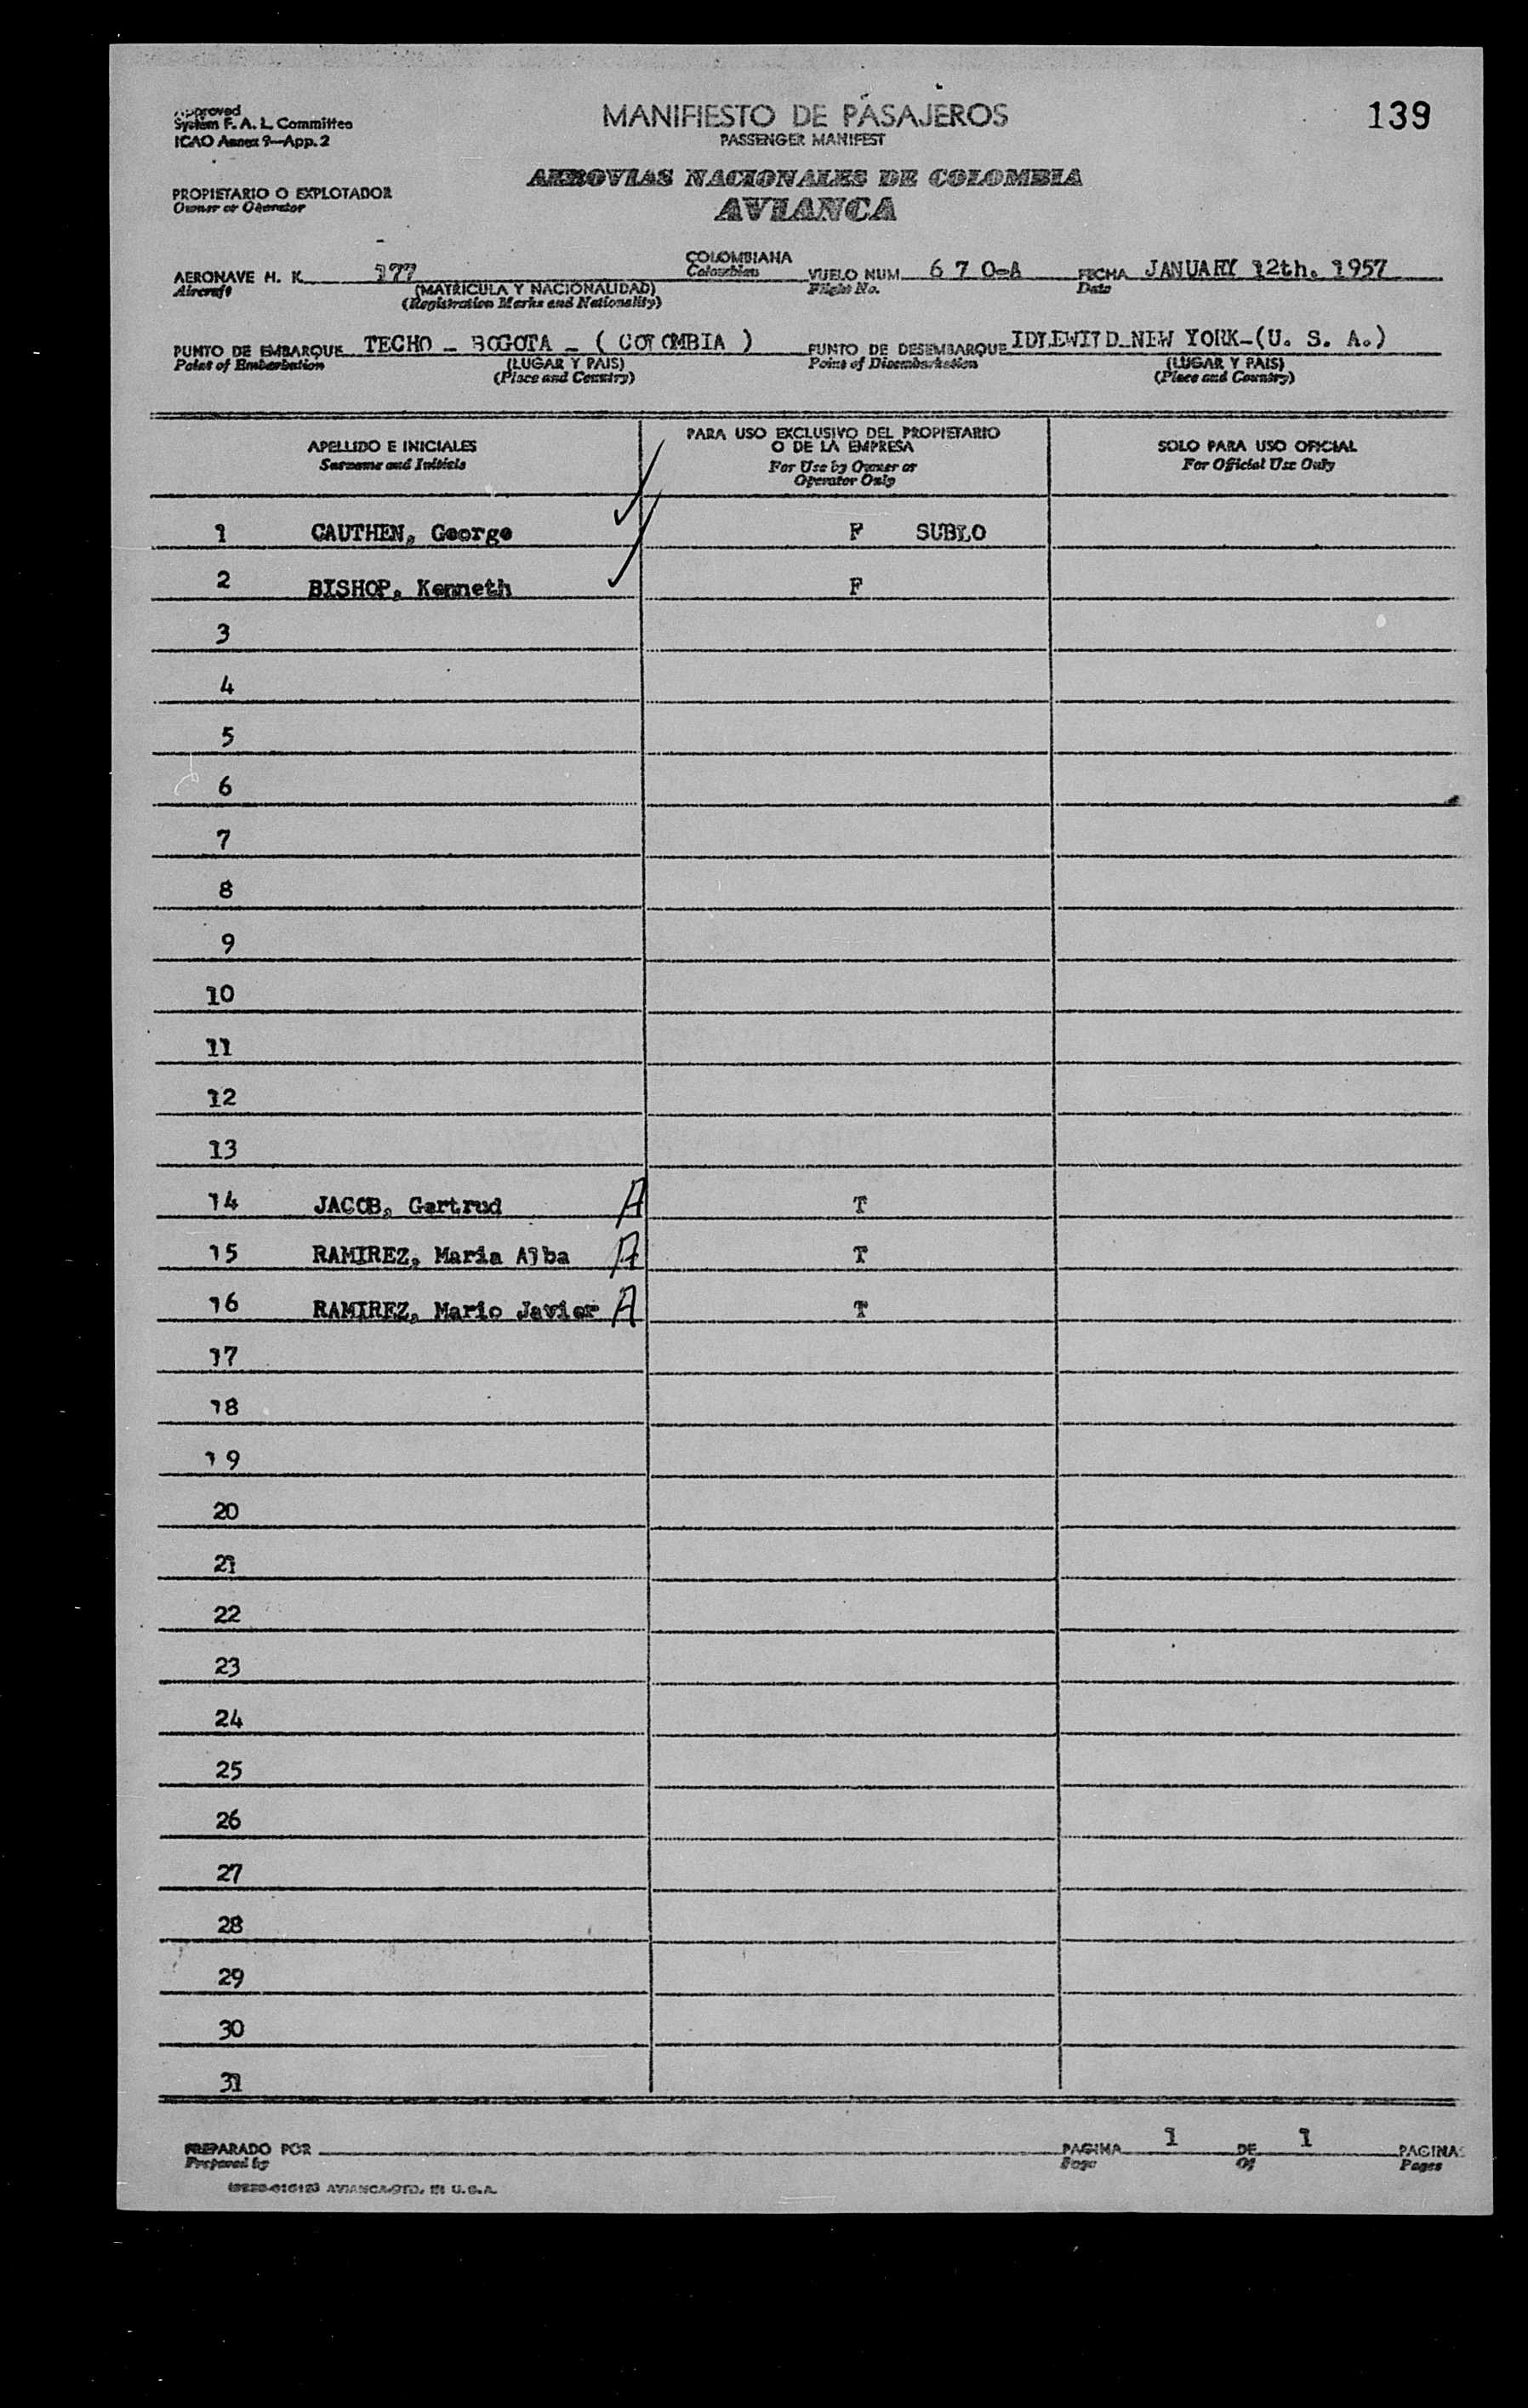 Approved
System F. A. L. Committee
ICAO Annex 9—App. 2
MANIFIESTO DE PASAJEROS
PASSENGER MANIFEST
139
AEROVIAS NACIONALES DE COLOMBIA
AVIANCA
PROPIETARIO O EXPLOTADOR
Owner or Operator
AERONAVE H. K. 177 COLOMBIANA VUELO NUM. 6 7 0-A FECHA JANUARY 12th. 1957
Aircraft (MATRICULA Y NACIONALIDAD) Colombian Flight No. Date
(Registration Marks and Nationality)
PUNTO DE EMBARQUE TECHO - BOGOTA - ( COLOMBIA ) PUNTO DE DESEMBARQUE IDLEWILD-NEW YORK-(U. S. A.)
Point of Embarkation (LUGAR Y PAIS) Point of Disembarkation (LUGAR Y PAIS)
(Place and Country) (Place and Country)
APELLIDO E INICIALES
Surname and Initials
PARA USO EXCLUSIVO DEL PROPIETARIO
O DE LA EMPRESA
For Use by Owner or
Operator Only
SOLO PARA USO OFICIAL
For Official Use Only
1 CAUTHEN, George F SUBLO
2 BISHOP, Kenneth F
3
4
5
6
7
8
9
10
11
12
13
14 JACOB, Gertrud A T
15 RAMIREZ, Maria Alba A T
16 RAMIREZ, Mario Javier A T
17
18
19
20
21
22
23
24
25
26
27
28
29
30
31
PREPARADO POR PAGINA 1 DE 1 PAGINAS
Prepared by Page Of Pages
AVIANCA-PTD. IN U.S.A.